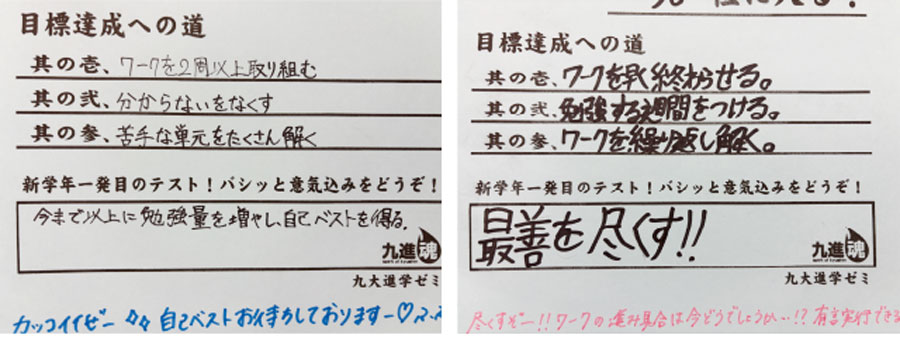 目標達成への道
其の壱、ワークを2周以上取り組む
其の弐、分からないをなくす
其の参、苦手な単元をたくさん解く
新学年一発目のテスト!バシッと意気込みをどうぞ!
今まで以上に勉強量を増やし、自己ベストを得る。
九進魂
九大進学ゼミ
カッコイイゼー 自己ベストお待ちしております―♡
目標達成への道
其の壱、ワークを早く終わらせる。
其の弐、勉強する週間をつける。
其の参、ワークを繰り返し解く。
新学年一発目のテスト!バシッと意気込みをどうぞ!
最善を尽くす!!
九進魂
九大進学ゼミ
尽くすぞー!!ワークの進み具合は今どうでしょうか…!?有言実行できる